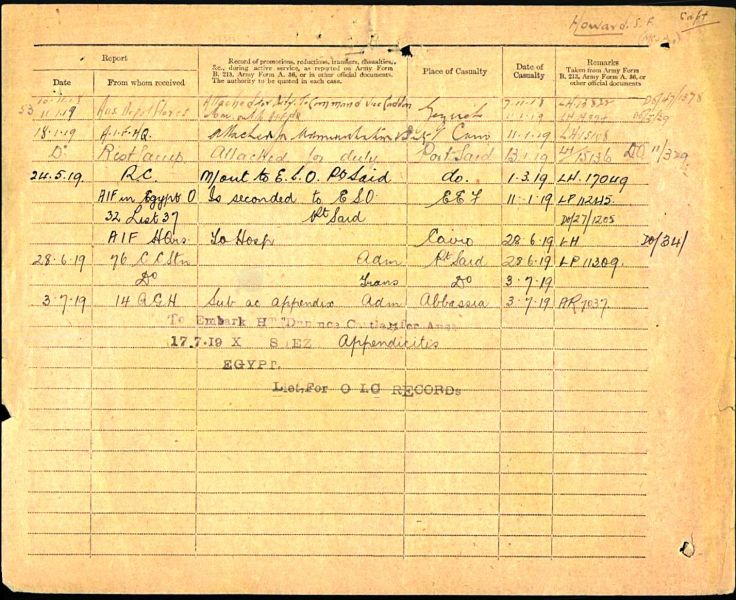 Howard. S. F. Capt
Report
Record of promotions, reductions, transfers, casualties,
&c., during active service, as reported on Army Form
B. 213, Army Form A. 36, or in other official documents.
The authority to be quoted in each case.
Place of Casualty
Date of
Casualty
Remarks
Taken from Army Form
B. 213, Army Form A. 36, or
other official documents
Date
From whom received
Attached for duty. To Command vice 7.11.18
53 11.1.19 1.1.19
18.1.19 A.I.F. HQ. Cairo 11.1.19 LH 15108
Do Rest Camp Attached for duty Port Said 13.1.19 15136 DO 11/329
24.5.19 R.C. M/out to E.S.O. Pt Said do. 1.3.19 LH. 17049
AIF in Egypt O Is seconded to E S O EEF 11.1.19 LP 112415.
32 List 37 Pt Said DO/27/1205
AIF Hqrs To Hosp Cairo 28.6.19 LH DO/34/
28.6.19 76 C C Stn Adm Pt Said 28.6.19 LP 11309.
Do Trans Do 3.7.19
3.7.19 14 A.G.H Sub ac appendix Adm Abbassia 3.7.19 AR 7037
To Embark
17.7.19 X S EZ Appendicitis
EGYPT.
Lieut. For O I C RECORDs